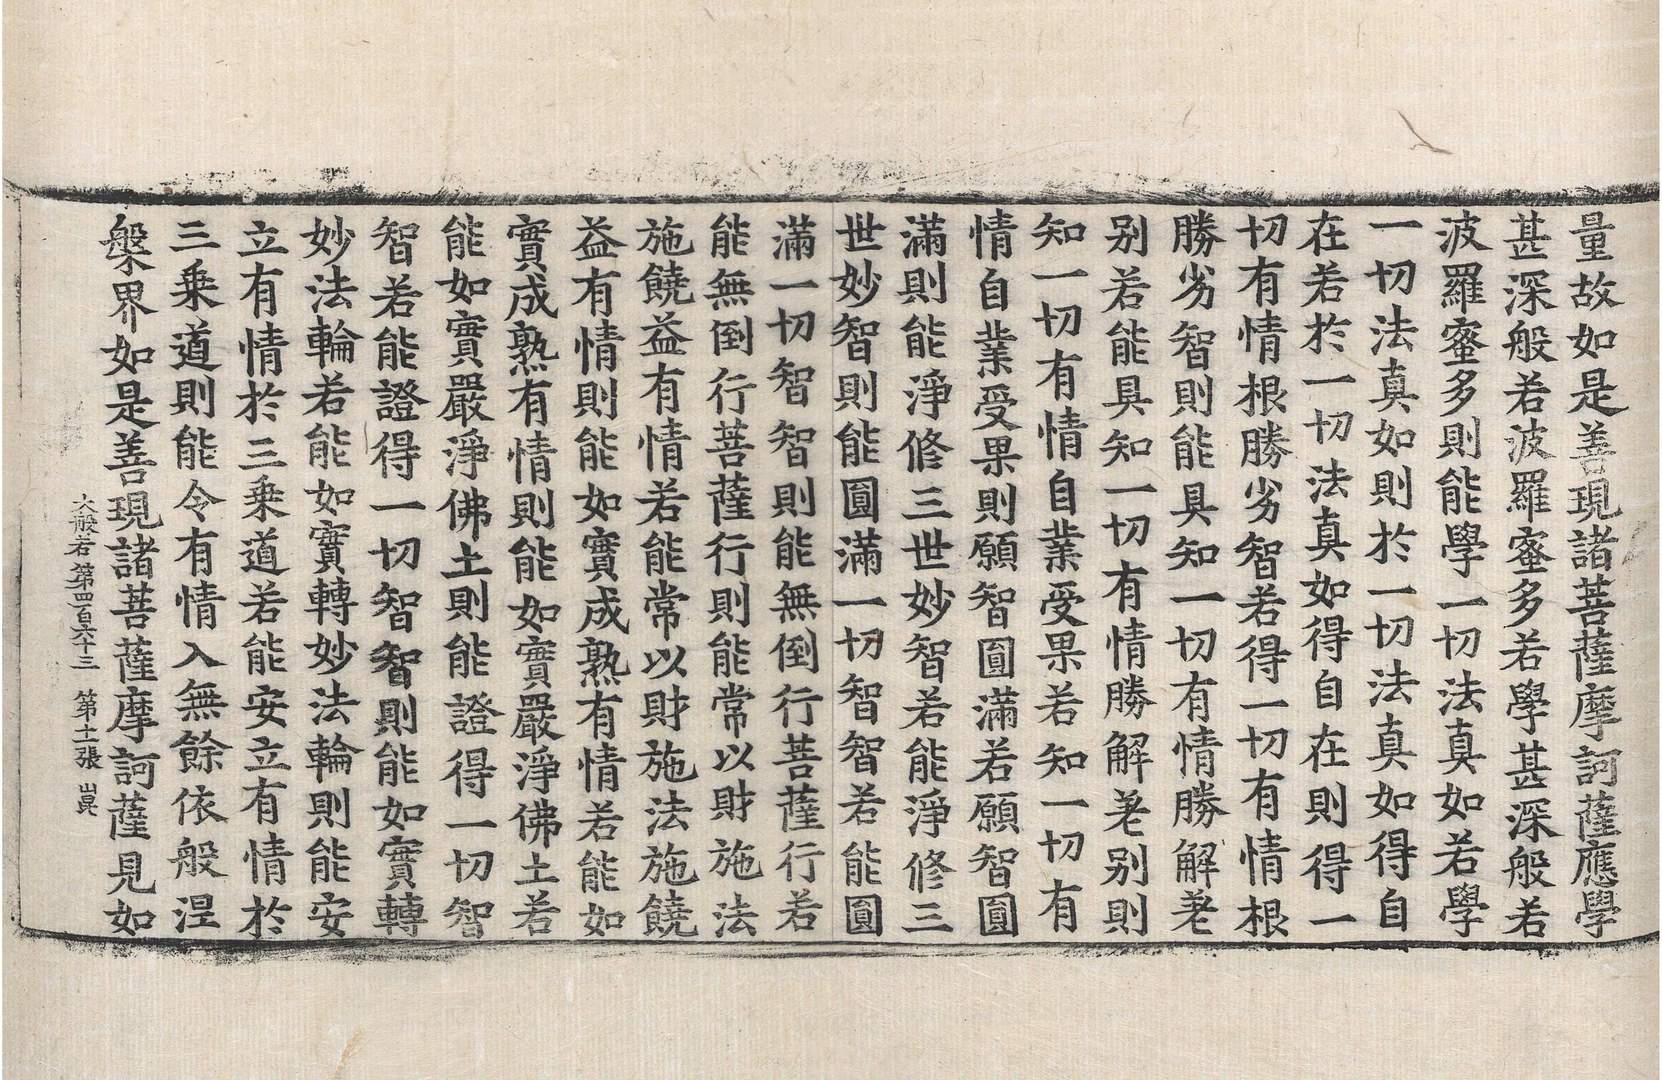 量故如是善現諸菩薩摩訶薩應學
甚深般若波羅蜜多若學甚深般若
波羅蜜多則能學一切法真如若學
一切法真如則於一切法真如得自
在若於一切法真如得自在則得一
切有情根勝劣智若得一切有情根
勝劣智則能具知一切有情勝解差
別若能具知一切有情勝解差別則
知一切有情自業受果若知一切有
情自業受果則願智圓滿若願智圓
滿則能淨修三世妙智若能淨修三
世妙智則能圓滿一切智智若能圓
滿一切智智則能無倒行菩薩行若
能無倒行菩薩行則能常以財施法
施饒益有情若能常以財施法施饒
益有情則能如實成熟有情若能如
實成熟有情則能如實嚴淨佛土若
能如實嚴淨佛土則能證得一切智
智若能證得一切智智則能如實轉
妙法輪若能如實轉妙法輪則能安
立有情於三乘道若能安立有情於
三乘道則能令有情入無餘依般涅
槃界如是善現諸菩薩摩訶薩見如
大般若第四百六十三 第十一張